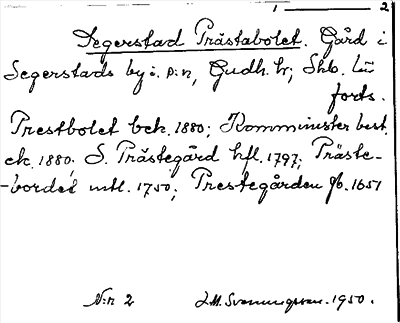 1 — 2
Segerstad Prästabolet. Gård i
Segerstads by i. s:n, Gudh. hr; Skb. län
forts.
Prestbolet bek. 1880; Komminister best.
ek. 1880. S. Prästegård hfl. 1797; Präste-
-bordet mtl. 1750; Prestegården jb. 1651
N:r 2 J.M. Svenungsson. 1950.